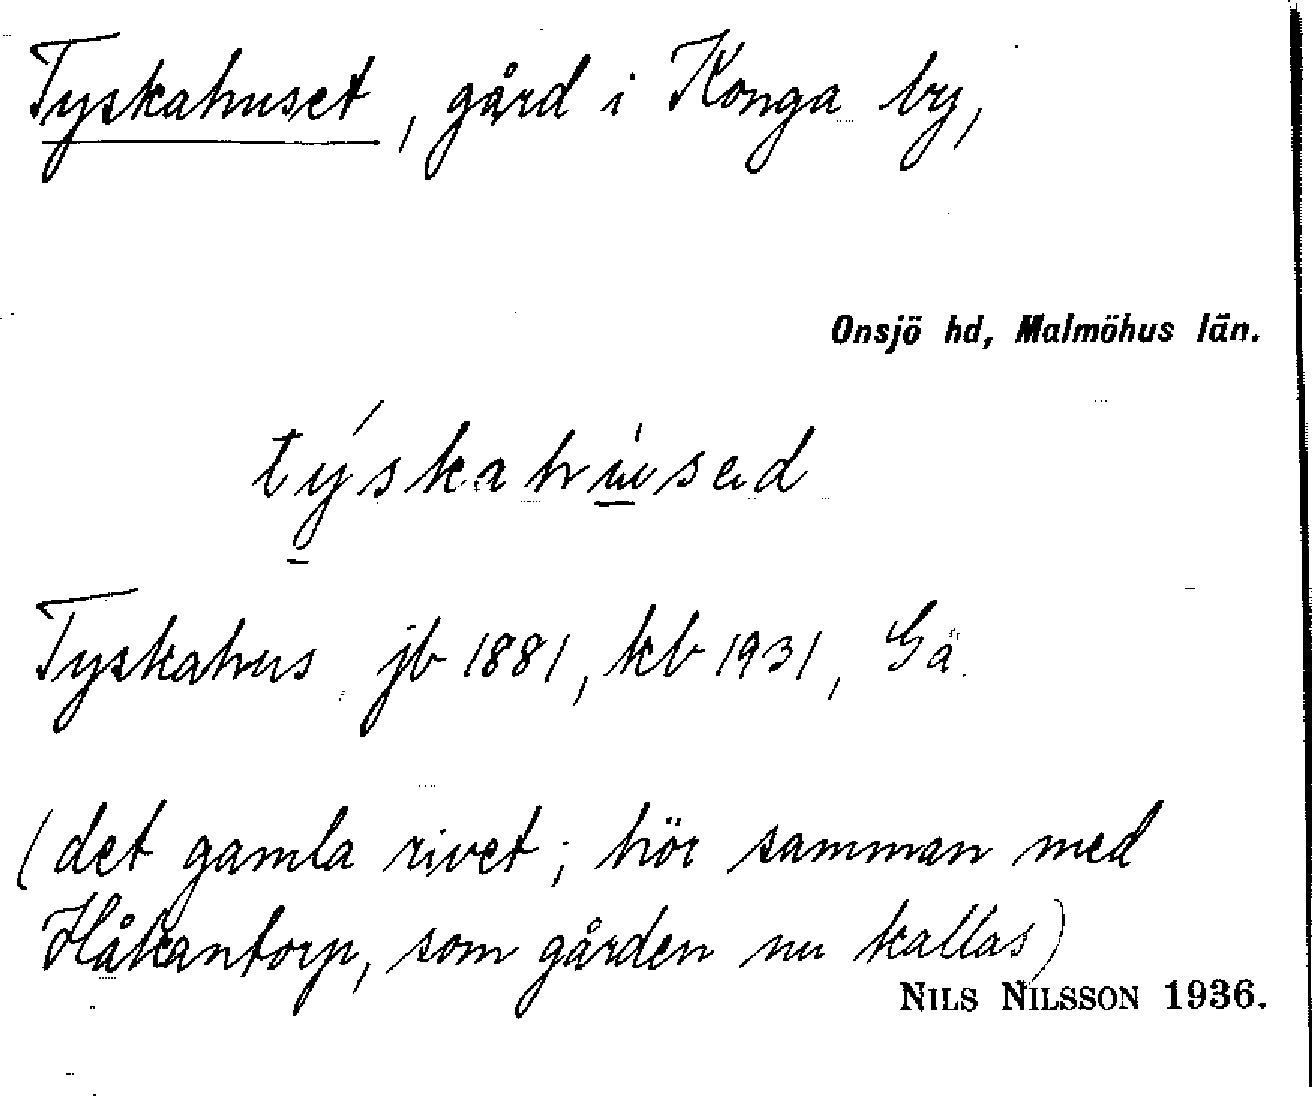 Tyskahuset, gård i Konga by,
Onsjö hd, Malmöhus län.
týskahùsed
Tyskahus jb 1881, kb 1931, Gå.
(det gamla rivet; hör samman med
Håkantorp, som gården nu kallas)
NILS NILSSON 1936.